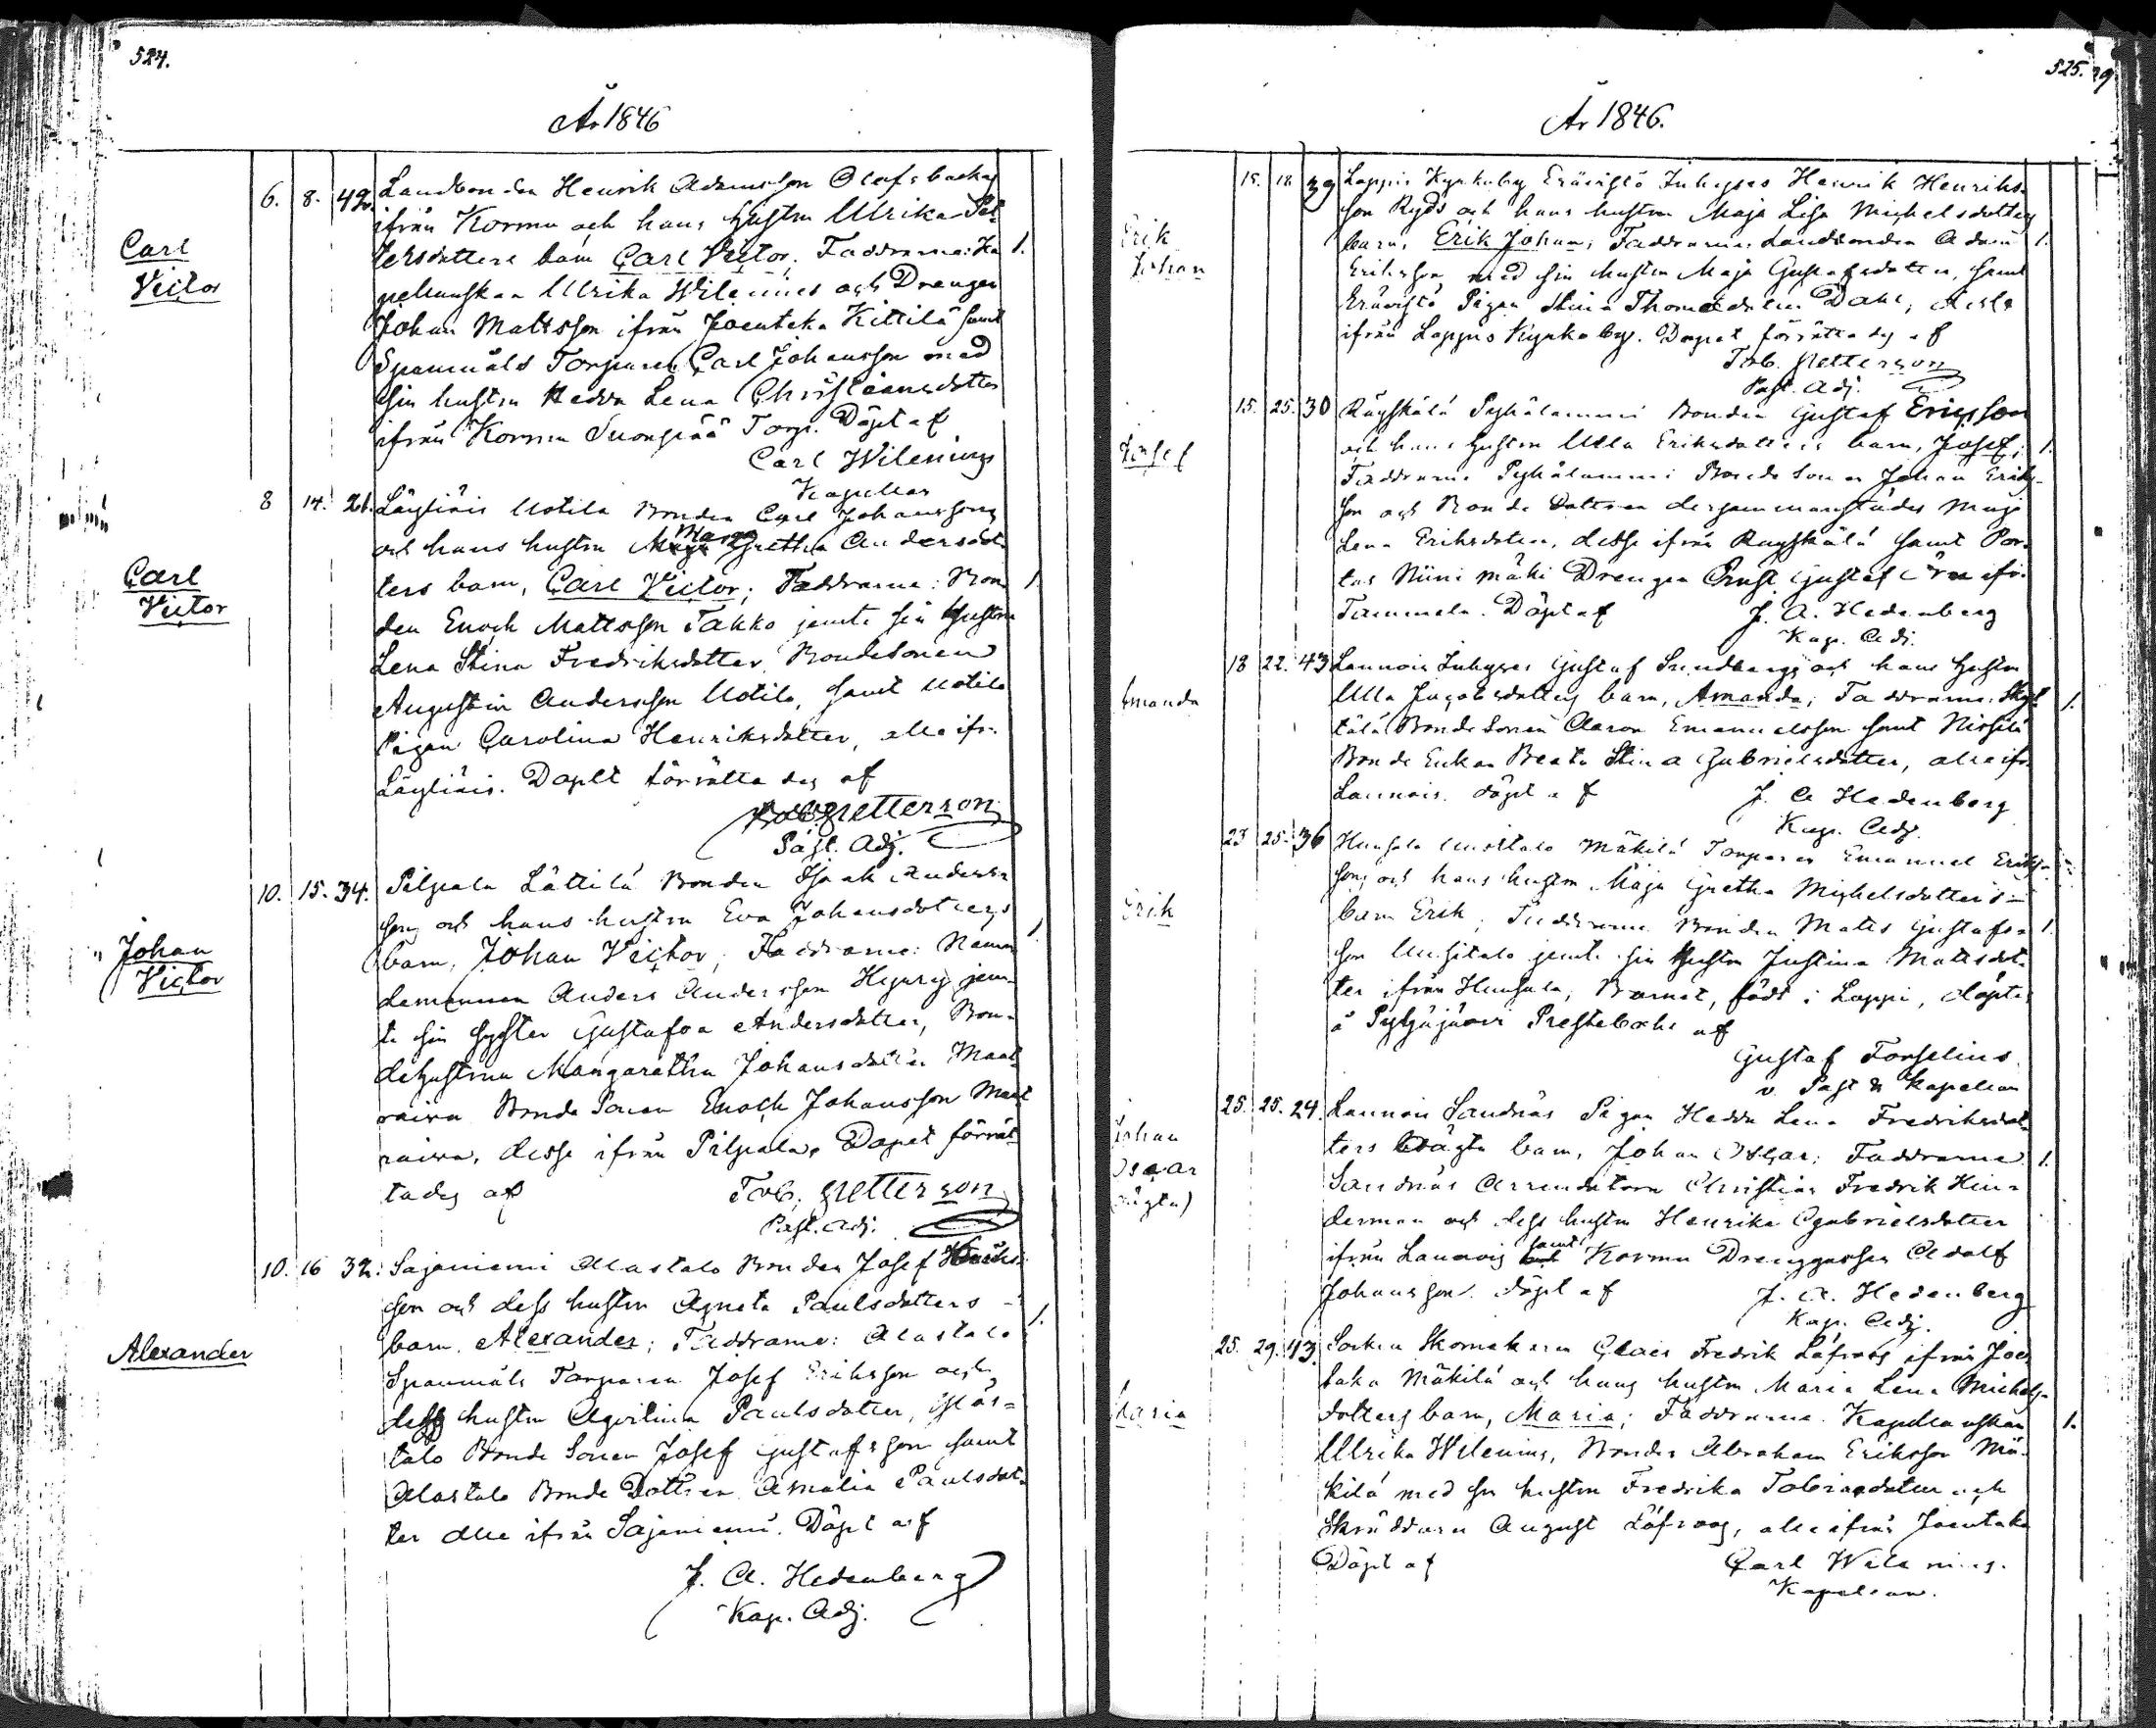 524.
År 1846
Carl
Victor
6. 8. 42. Landbonden Henrik Adamsson Olofsbackas
ifrån Kormu och hans hustru Ulrika Pet
tersdotters barn Carl Victor. Faddrarna: Ka 1.
pellanskan Ulrika Wilenius och Drengen
Johan Mattsson ifrån Joentaka Kittilä samt
Spanmåls Torparen Carl Johansson med
sin hustru Hedda Lena Christiansdotter
ifrån Kormu Suonpää Torp. Döpt af
Carl Wilenius
Kapellan
Carl
Victor
8 14. 21. Läyliäis Uotila Bonden Carl Johanssons
och hans hustru Marg Gretha Andersdot
ters barn, Carl Victor; Faddrarna: Bon 1.
den Enoch Mattsson Takko jemte sin hustru
Lena Stina Fredriksdotter, Bondesonen
Augustin Andersson Uotila, samt Uotila
Pigan Carolina Henriksdotter, alla ifr.
Läyliäis. Dopet förrättades af
Tob. Petterson
Past. Adj.
Johan
Victor
10. 15. 34. Pilpala Lättilä Bonden Isak Anders
son och hans hustru Eva Johansdotters
barn, Johan Victor; Faddrarne: Näm 1.
demannen Anders Andersson Hyyry jem
te sin syster Gustafva Andersdotter, Bon-
dehustrun Margaretha Johansdotter Maat
raiva Bonde Sonen Enoch Johansson Maat
raiva, desse ifrån Pilpala. Dopet förrät
tades af Tob. Petterson
Past. Adj.
Alexander
10. 16 32. Sajaniemi Alastalo Bonden Josef Henriks
son och dess hustru Agneta Paulsdotters 1.
barn. Alexander; Faddrarne: Alastalo
Spanmåls Torparen Josef Eriksson och
dess hustru Agvilina Paulsdotter,
talo Bonde Sonen Josef Gustafsson samt
Alastalo Bonde Dottren Amalia Paulsdot-
ter alla ifrån Sajaniemi. Döpt af
J. A. Hedenberg
Kap. Adj.
525.
År 1846.
Erik
Johan
15. 18 39 Loppis Kyrkoby Erävistö Inhyses Henrik Henriks-
son Ryds och hans hustru Maja Lisa Michelsdotters
barn, Erik Johan; Faddrarne: Landbonden Adam 1.
Eriksson med sin hustru Maja Gustafsdotter, samt
Erävistö Pigan Stina Thomasdotter Dahl, desse
ifrån Loppis Kyrkoby. Dopet förrättades af
Tob. Petterson
Past. Adj.
Josef
15. 25. 30 Räyskälä Pyhälammi Bonden Gustaf Ericsson
och hans hustru Ulla Eriksdotters barn, Josef; 1.
Faddrarne Pyhälammi Bonde Sonen Johan Eriks-
son och Bonde Dottren dersammanstädes Maja
Lena Eriksdotter, desse ifrån Räyskälä samt Por-
tas Niinimäki Drengen Ernst Gustaf Örn ifr.
Tammela. Döpt af J. A. Hedenberg
Kap. Adj.
Amanda
18 22. 43 Launois Inhyses Gustaf Sundbergs och hans hustru
Ulla Jacobsdotters barn, Amanda; Faddrarne: 1.
tälä Bonde Sonen Aaron Emanuelsson samt Nissilä
Bonde Enkan Beata Stina Gabrielsdotter, alla ifr.
Launois. Döpt af J. A Hedenberg
Kap. Adj.
Erik
23 25. 36 Hunsala Uusitalo Mäkilä Torparen Emanuel Eriks-
son och hans hustru Maja Gretha Michelsdotter's
barn Erik; Faddrarne Bonden Matts Gustafs- 1.
son Uusitalo jemte sin hustru Justina Mattsdot-
ter ifrån Hunsala, Barnet, födt i Loppi, döptes
å Pyhäjärvi Prestebohl af
Gustaf Forselius
v. Past & Kapellan
Johan
Oscar
(oägta)
25. 25. 24. Launois Sandnäs Pigan Hedda Lena Fredriksdot-
ters oägta barn, Johan Oscar; Faddrarne 1.
Sandnäs Arrendatorn Christian Fredrik Hin-
derman och dess hustru Henrika Gabrielsdotter
ifrån Launois samt Kormu Drenggossen Adolf
Johansson. Döpt af J. A. Hedenberg
Kap. Adj.
Maria
25. 29. 43. Socken Skomakaren Claes Fredrik Löfroos ifrån Joen
taka Mäkilä och hans hustru Maria Lena Michels-
dotters barn, Maria; Faddrarne. Kapellanskan 1.
Ulrika Wilenius, Bonden Abraham Eriksson Mä-
kilä med sin hustru Fredrika Tobiasdotter och
Skräddaren August Löfroos, alla ifrån Joentaka
Döpt af Carl Wilenius.
Kapellan.